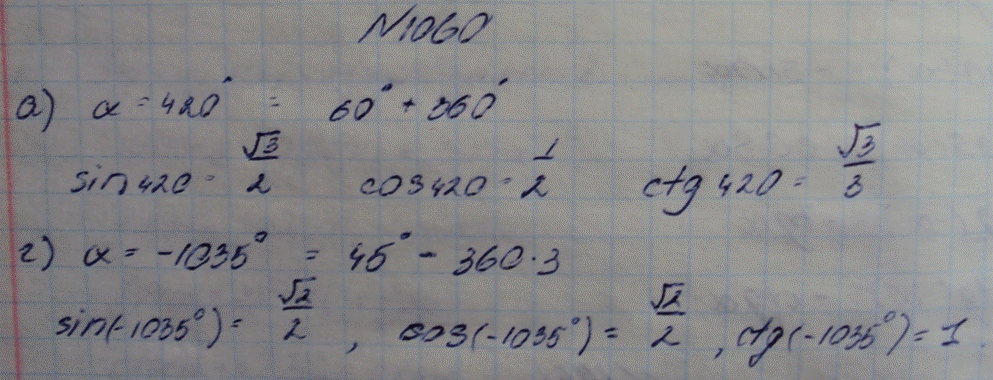 N1060
а) α = 420° = 60° + 360°
sin 420 = √3/2 cos 420 = 1/2 ctg 420 = √3/3
г) α = -1035° = 45° - 360·3
sin(-1035°) = √2/2 , cos(-1035°) = √2/2 , ctg(-1035°) = 1